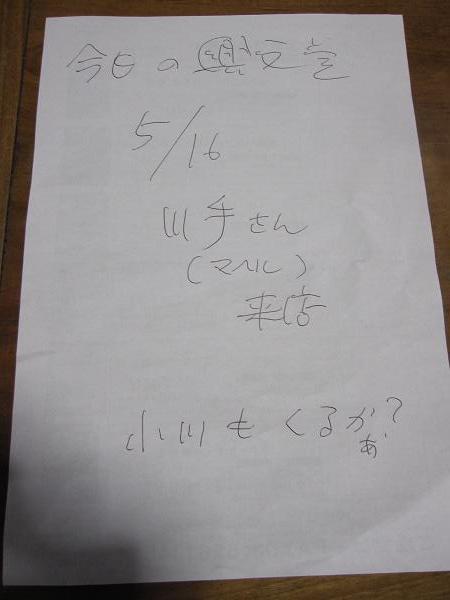 今日の興文堂
5/16
川手さん
(マベル)
来店
小川もくるか?
あ